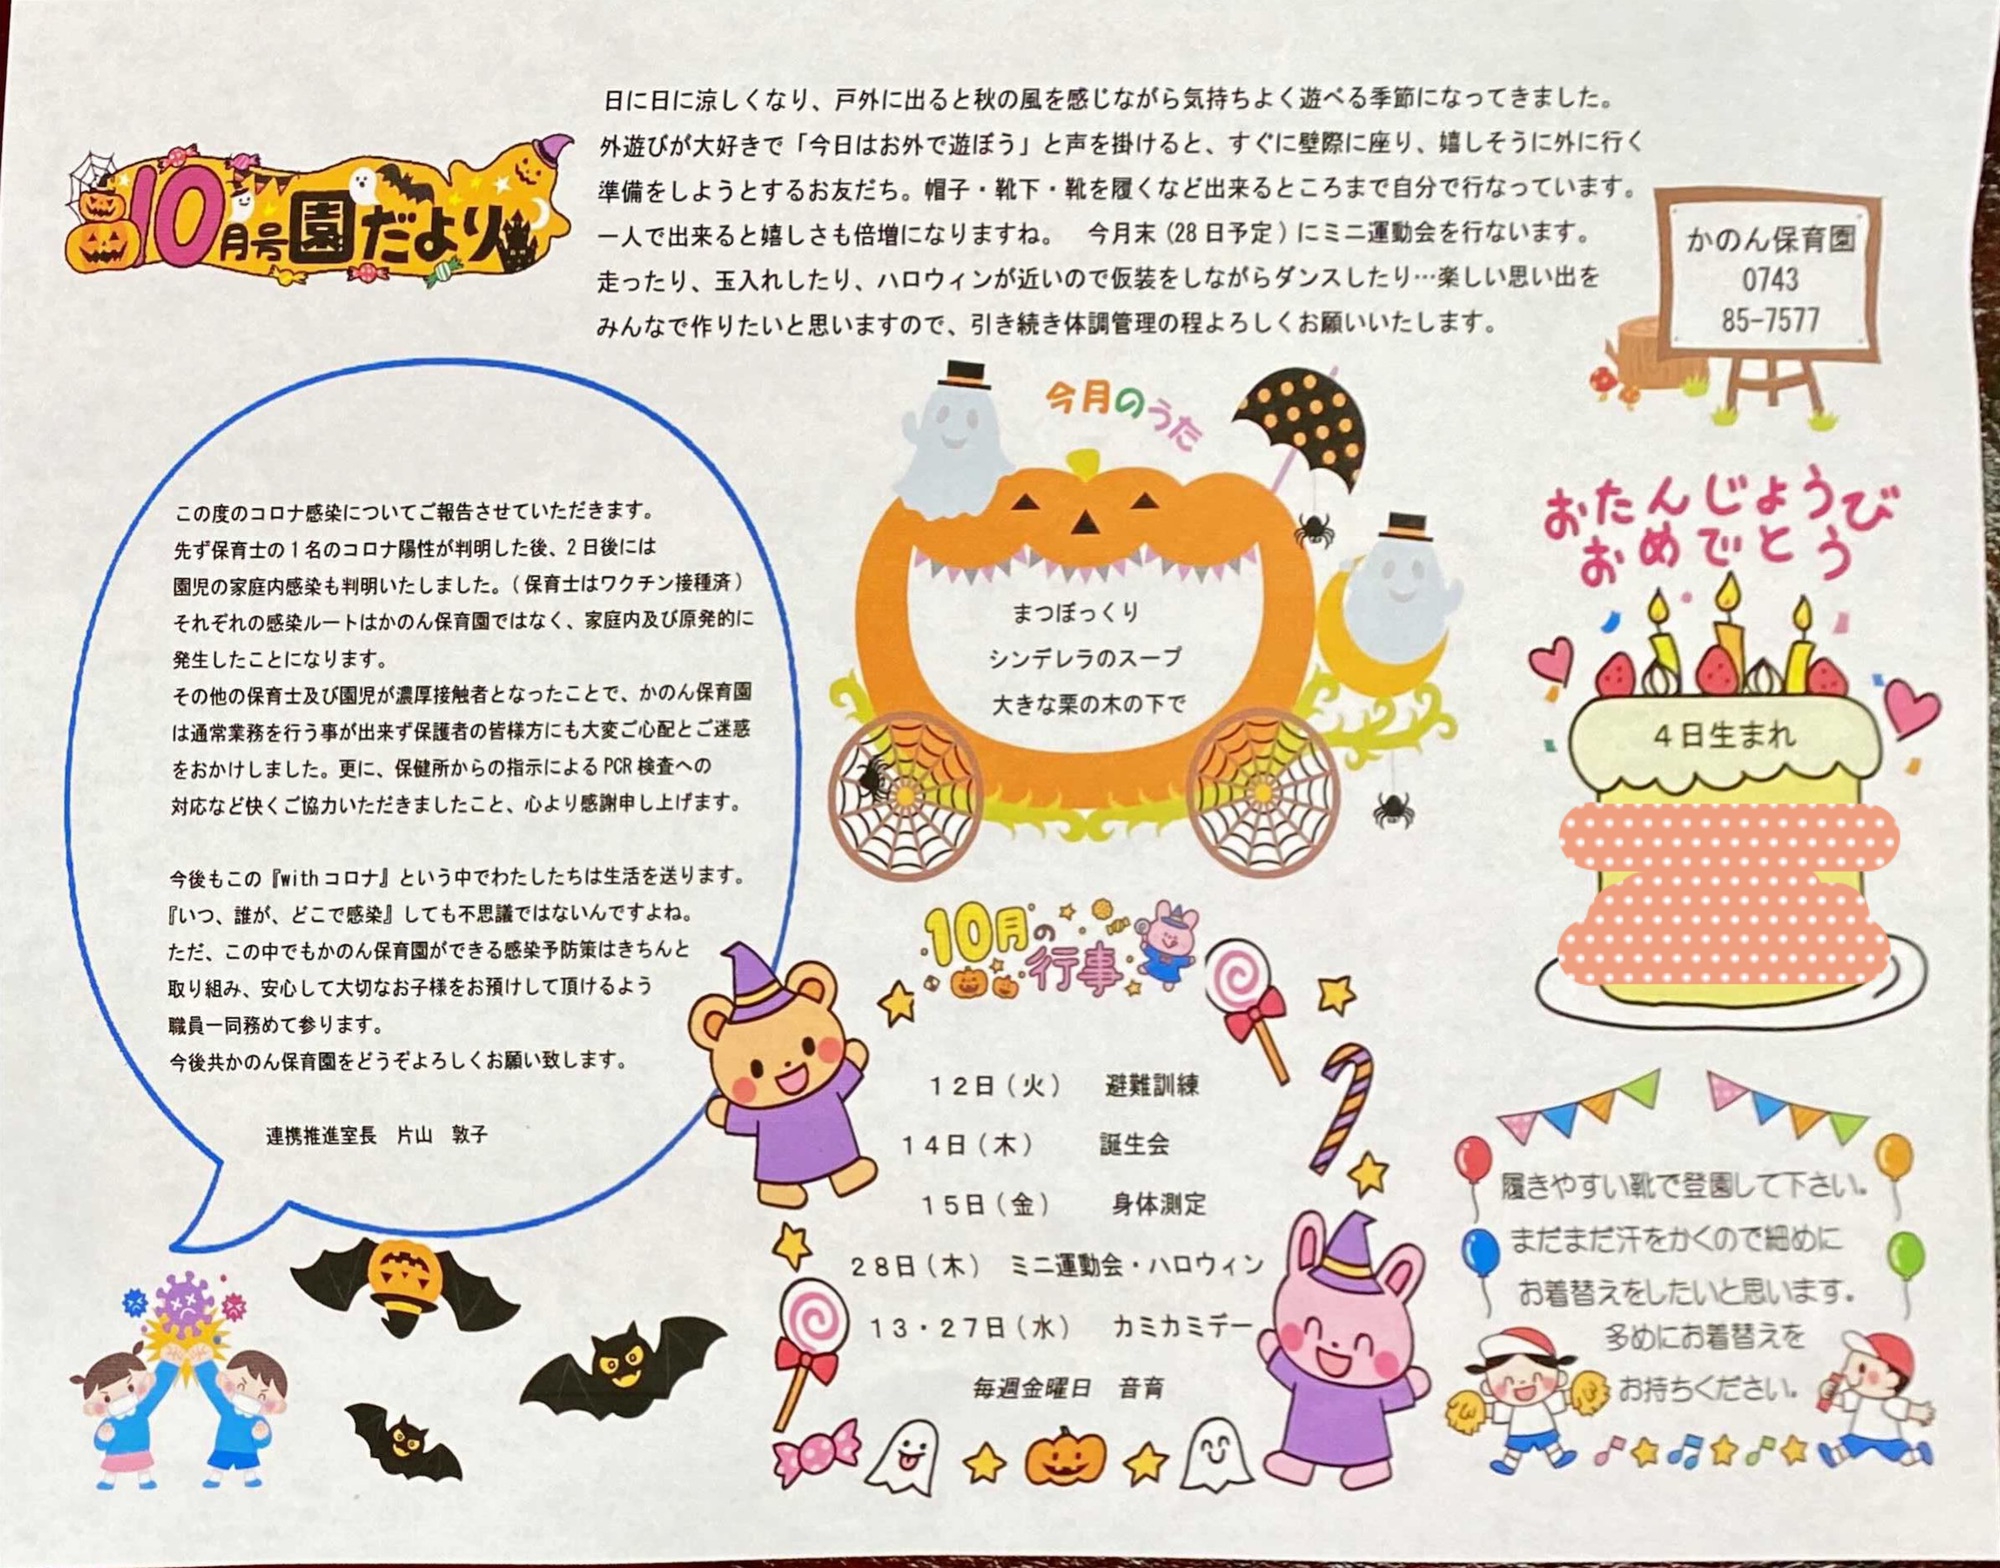 10月号園だより
日に日に涼しくなり、戸外に出ると秋の風を感じながら気持ちよく遊べる季節になってきました。
外遊びが大好きで「今日はお外で遊ぼう」と声を掛けると、すぐに壁際に座り、嬉しそうに外に行く
準備をしようとするお友だち。帽子・靴下・靴を履くなど出来るところまで自分で行なっています。
一人で出来ると嬉しさも倍増になりますね。　今月末(28日予定)にミニ運動会を行ないます。
走ったり、玉入れしたり、ハロウィンが近いので仮装をしながらダンスしたり…楽しい思い出を
みんなで作りたいと思いますので、引き続き体調管理の程よろしくお願いいたします。
かのん保育園
0743
85-7577
この度のコロナ感染についてご報告させていただきます。
先ず保育士の1名のコロナ陽性が判明した後、2日後には
園児の家庭内感染も判明いたしました。(保育士はワクチン接種済)
それぞれの感染ルートはかのん保育園ではなく、家庭内及び原発的に
発生したことになります。
その他の保育士及び園児が濃厚接触者となったことで、かのん保育園
は通常業務を行う事が出来ず保護者の皆様方にも大変ご心配とご迷惑
をおかけしました。更に、保健所からの指示によるPCR検査への
対応など快くご協力いただきましたこと、心より感謝申し上げます。
今後もこの『withコロナ』という中でわたしたちは生活を送ります。
『いつ、誰が、どこで感染』しても不思議ではないんですよね。
ただ、この中でもかのん保育園ができる感染予防策はきちんと
取り組み、安心して大切なお子様をお預けして頂けるよう
職員一同務めて参ります。
今後共かのん保育園をどうぞよろしくお願い致します。
連携推進室長　片山　敦子
今月のうた
まつぼっくり
シンデレラのスープ
大きな栗の木の下で
おたんじょうび
おめでとう
4日生まれ
10月の
行事
12日(火)　避難訓練
14日(木)　誕生会
15日(金)　身体測定
28日(木)　ミニ運動会・ハロウィン
13・27日(水)　カミカミデー
毎週金曜日　音育
履きやすい靴で登園して下さい。
まだまだ汗をかくので細めに
お着替えをしたいと思います。
多めにお着替えを
お持ちください。